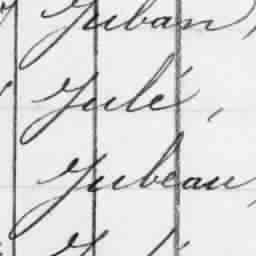 Juban,
Julé,
Jubeau,